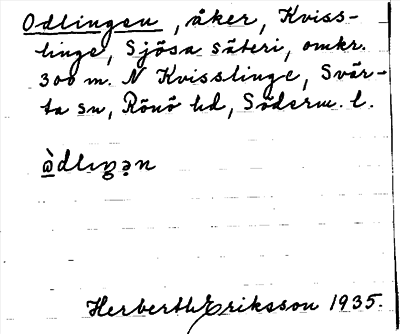 Odlingen, åker, Kviss-
linge, Sjösa säteri, omkr.
300 m. N Kvisslinge, Svär-
ta sn, Rönö hd, Söderm. l.
Herberth Eriksson 1935.